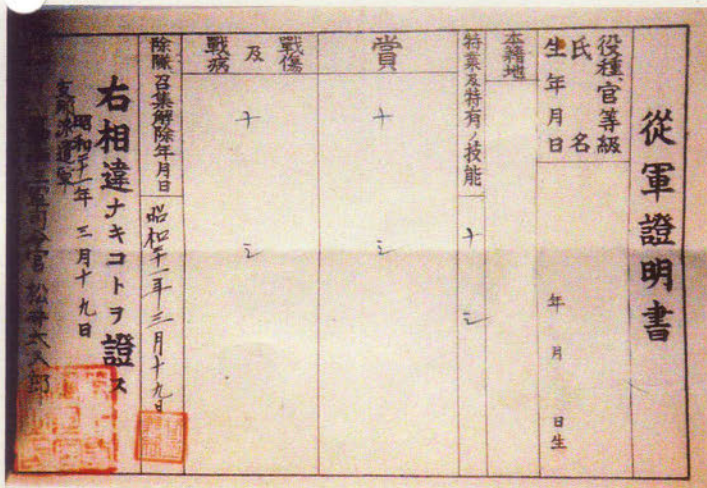 從軍證明書
役種、官等級
氏名
生年月日
年月日生
本籍地
特業及特有ノ技能
ナシ
賞
ナシ
戰傷及戰病
ナシ
除隊召集解除年月日
昭和二十一年三月十九日
右相違ナキコトヲ證ス
昭和二十一年三月十九日
支那派遣軍
軍司令官 松井太久郎